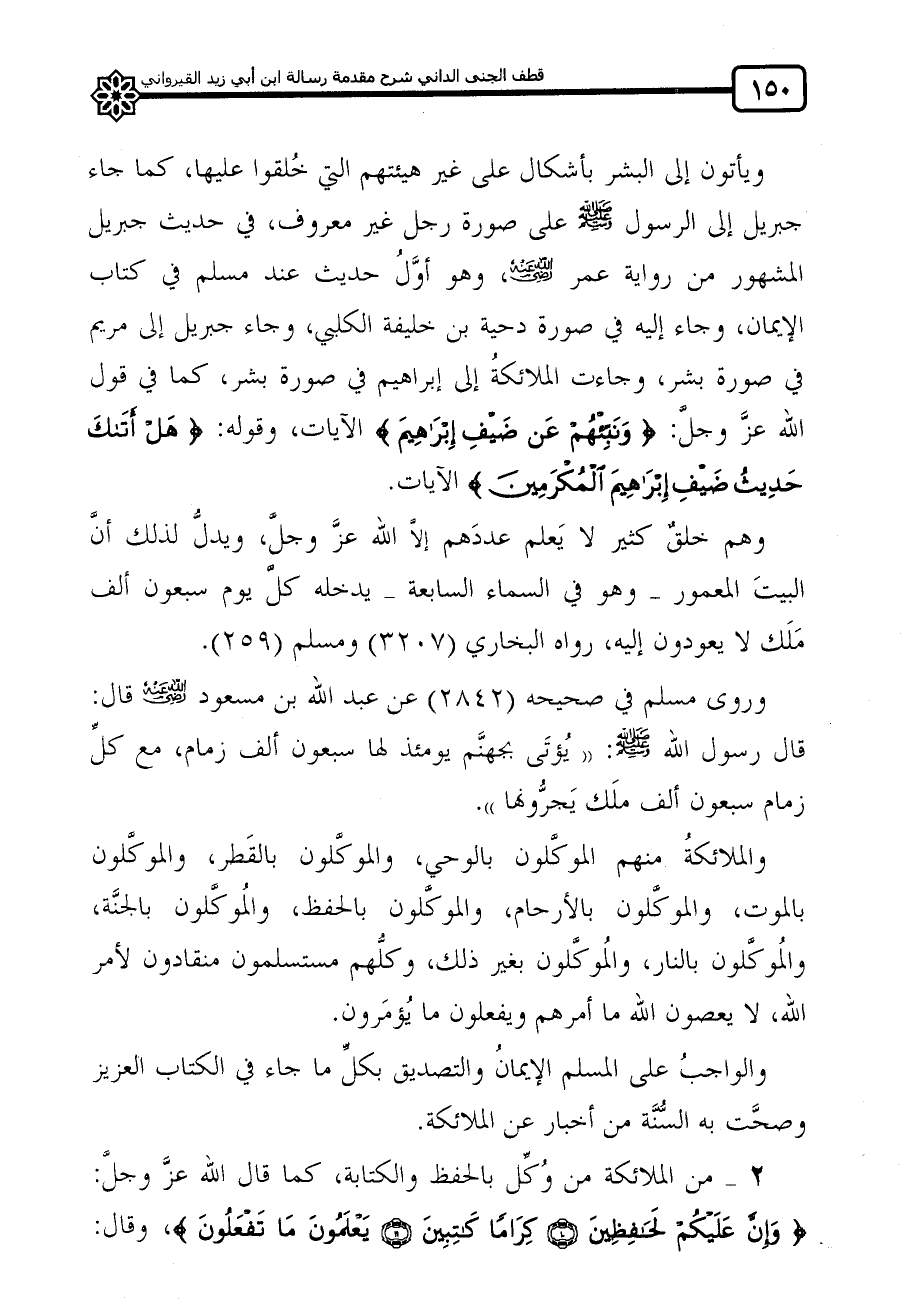 ١٥٠
قطف الجنى الداني شرح مقدمة رسالة ابن أبي زيد القيرواني
ويأتون إلى البشر بأشكال على غير هيئتهم التي خُلقوا عليها، كما جاء
جبريل إلى الرسول ﷺ على صورة رجل غير معروف، في حديث جبريل
المشهور من رواية عمر رضي الله عنه، وهو أوَّلُ حديث عند مسلم في كتاب
الإيمان، وجاء إليه في صورة دحية بن خليفة الكلبي، وجاء جبريل إلى مريم
في صورة بشر، وجاءت الملائكةُ إلى إبراهيم في صورة بشر، كما في قول
الله عزَّ وجلَّ: ﴿ وَنَبِّئْهُمْ عَن ضَيْفِ إِبْرَٰهِيمَ ﴾ الآيات، وقوله: ﴿ هَلْ أَتَىٰكَ
حَدِيثُ ضَيْفِ إِبْرَٰهِيمَ ٱلْمُكْرَمِينَ ﴾ الآيات.
وهم خلقٌ كثير لا يَعلم عددَهم إلاَّ الله عزَّ وجلَّ، ويدلُّ لذلك أنَّ
البيتَ المعمور ـ وهو في السماء السابعة ـ يدخله كلَّ يوم سبعون ألف
مَلَك لا يعودون إليه، رواه البخاري (٣٢٠٧) ومسلم (٢٥٩).
وروى مسلم في صحيحه (٢٨٤٢) عن عبد الله بن مسعود رضي الله عنه قال:
قال رسول الله ﷺ: (( يُؤتَى بجهنَّم يومئذ لها سبعون ألف زمام، مع كلِّ
زمام سبعون ألف ملَك يَجرُّونها )).
والملائكةُ منهم الموكَّلون بالوحي، والموكَّلون بالقَطر، والموكَّلون
بالموت، والموكَّلون بالأرحام، والموكَّلون بالحفظ، والمُوكَّلون بالجنَّة،
والمُوكَّلون بالنار، والمُوكَّلون بغير ذلك، وكلُّهم مستسلمون منقادون لأمر
الله، لا يعصون الله ما أمرهم ويفعلون ما يُؤمَرون.
والواجبُ على المسلم الإيمانُ والتصديق بكلِّ ما جاء في الكتاب العزيز
وصحَّت به السُّنَّة من أخبار عن الملائكة.
٢ ـ من الملائكة من وُكِّل بالحفظ والكتابة، كما قال الله عزَّ وجلَّ:
﴿ وَإِنَّ عَلَيْكُمْ لَحَٰفِظِينَ ۝ كِرَامًا كَٰتِبِينَ ۝ يَعْلَمُونَ مَا تَفْعَلُونَ ﴾، وقال: